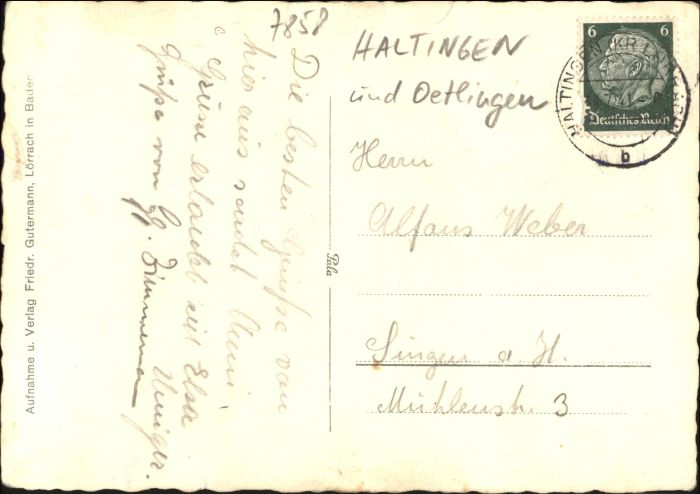 7858
HALTINGEN
und Oetlingen
6 6
Deutsches Reich
HALTINGEN (KR LÖRRACH)
b
Herrn
Alfons Weber
Singen a. H.
Mühlenstr. 3
Die besten Grüße von
hier aus sendet
Grüße erlaubt sich Elsa
Grüße von Gg. Zimmermann
Pala
Aufnahme u. Verlag Friedr. Gutermann, Lörrach in Baden